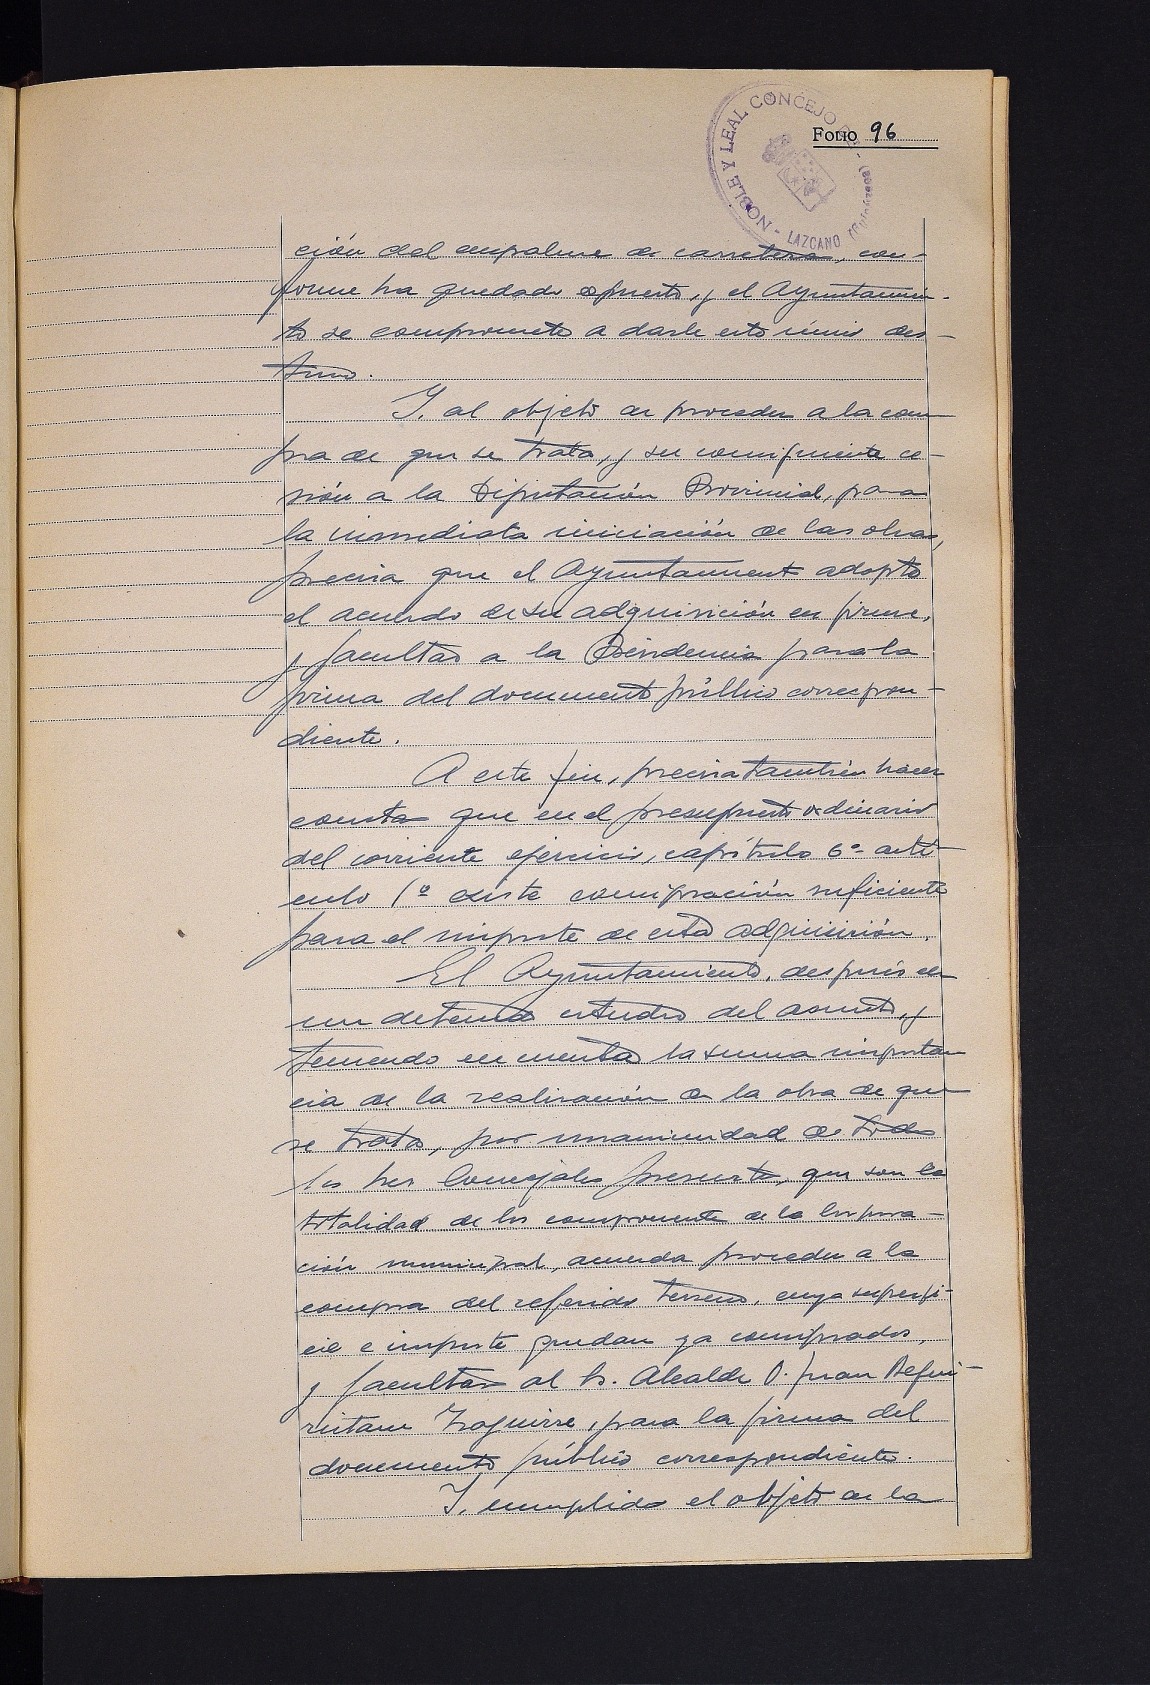 NOBLE Y LEAL CONCEJO DE - LAZCANO (GUIPUZCOA)
FOLIO 96
ción del empalme de carretera, con-
forme ha quedado expuesto, y el Ayuntamien-
to se compromete a darle este único des-
tino.
Y, al objeto de proceder a la com
pra de que se trata, y su consiguiente ce-
sión a la Diputación Provincial, para
la inmediata iniciación de las obras,
precisa que el Ayuntamiento adopte
el acuerdo de su adquisición en firme,
y facultar a la Presidencia para la
firma del documento público correspon-
diente.
A este fin, precisa también hacer
constar que en el presupuesto ordinario
del corriente ejercicio, capítulo 6º artí
culo 1º existe consignación suficiente
para el importe de esta adquisición.
El Ayuntamiento, después de
un detenido estudio del asunto, y
teniendo en cuenta la suma importan
cia de la realización de la obra de que
se trata, por unanimidad de todos
los Concejales presentes, que son la
totalidad de los componentes de la Corpora-
ción municipal, acuerda proceder a la
compra del referido terreno, cuya superfi-
cie e importe quedan ya consignados,
y facultar al Sr. Alcalde D. Juan
Izaguirre, para la firma del
documento público correspondiente.
Y, cumplido el objeto de la